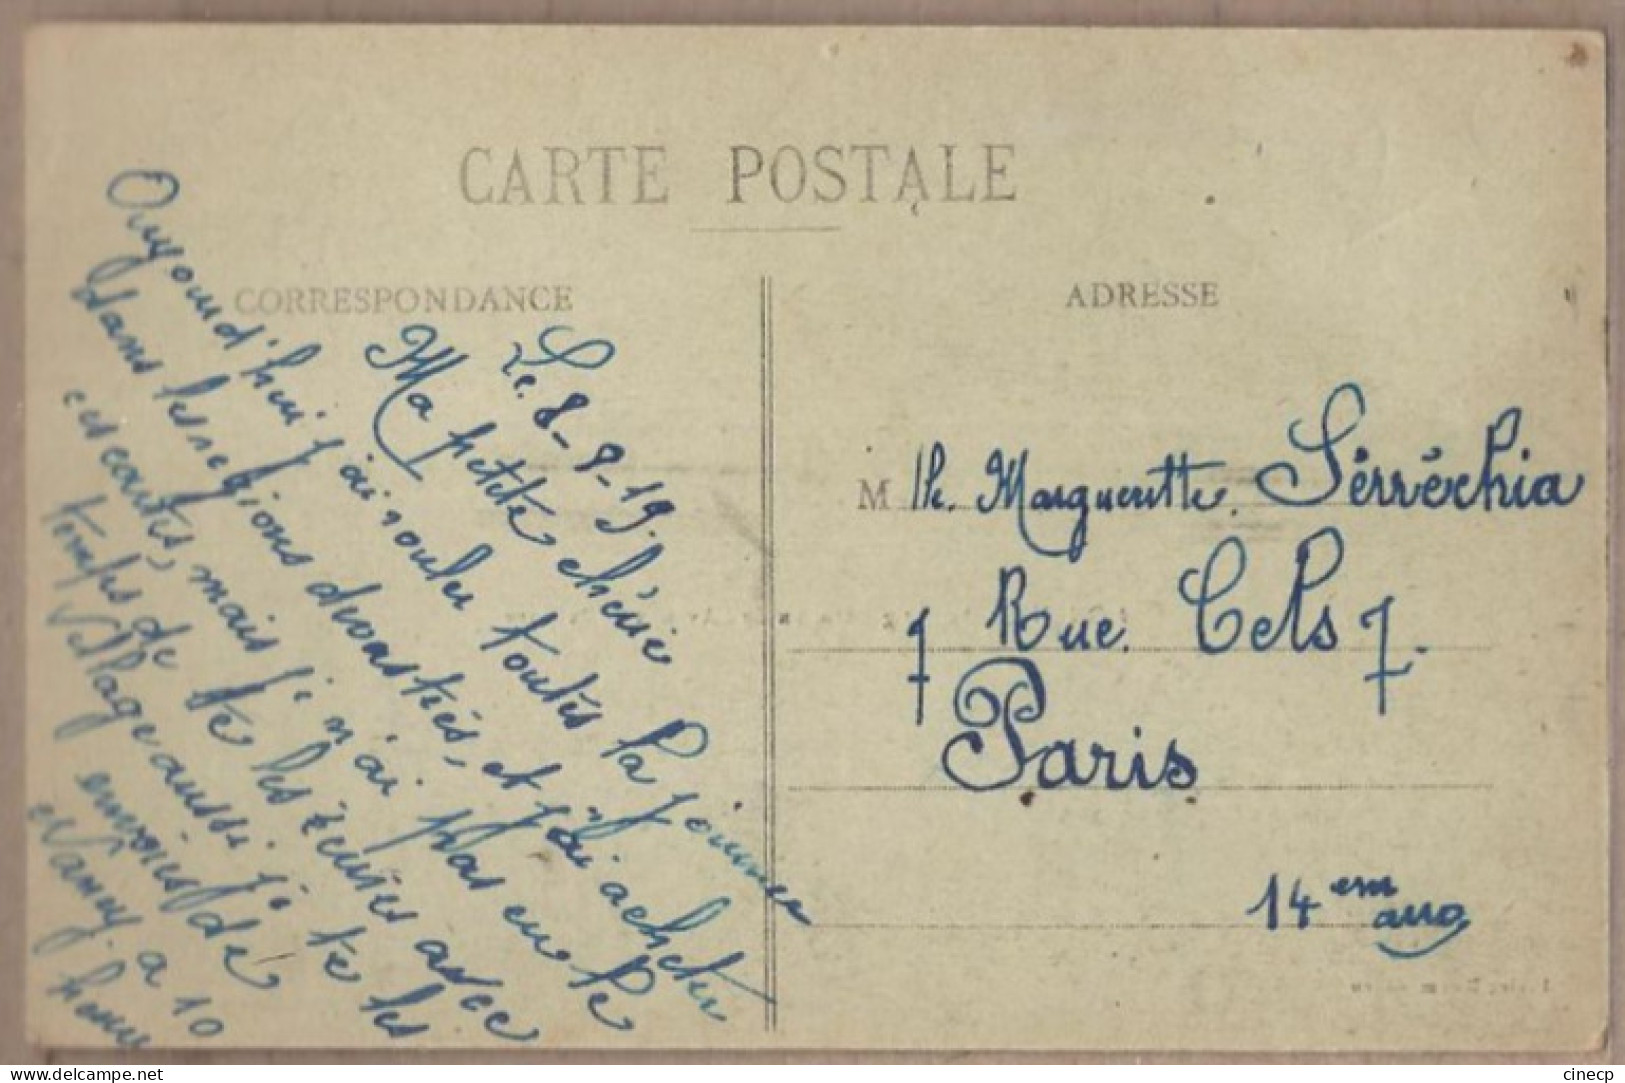 CARTE POSTALE
CORRESPONDANCE
ADRESSE
Le. 8-9-19.
Ma petite chérie
Aujourd'hui j'ai rouler toutes la journer
dans les regions dévastiés, et j'ai acheter
ces cartes, mais j'i n'ai pas eu le
temps de te les écrires avec
Village aussi j'i te les
envoies dé
Nancy. a 10
heur
M lle. Margueritte. Sérréchia
7 Rue. Cels 7.
Paris
14 em arro
delcampe.net
cinecp